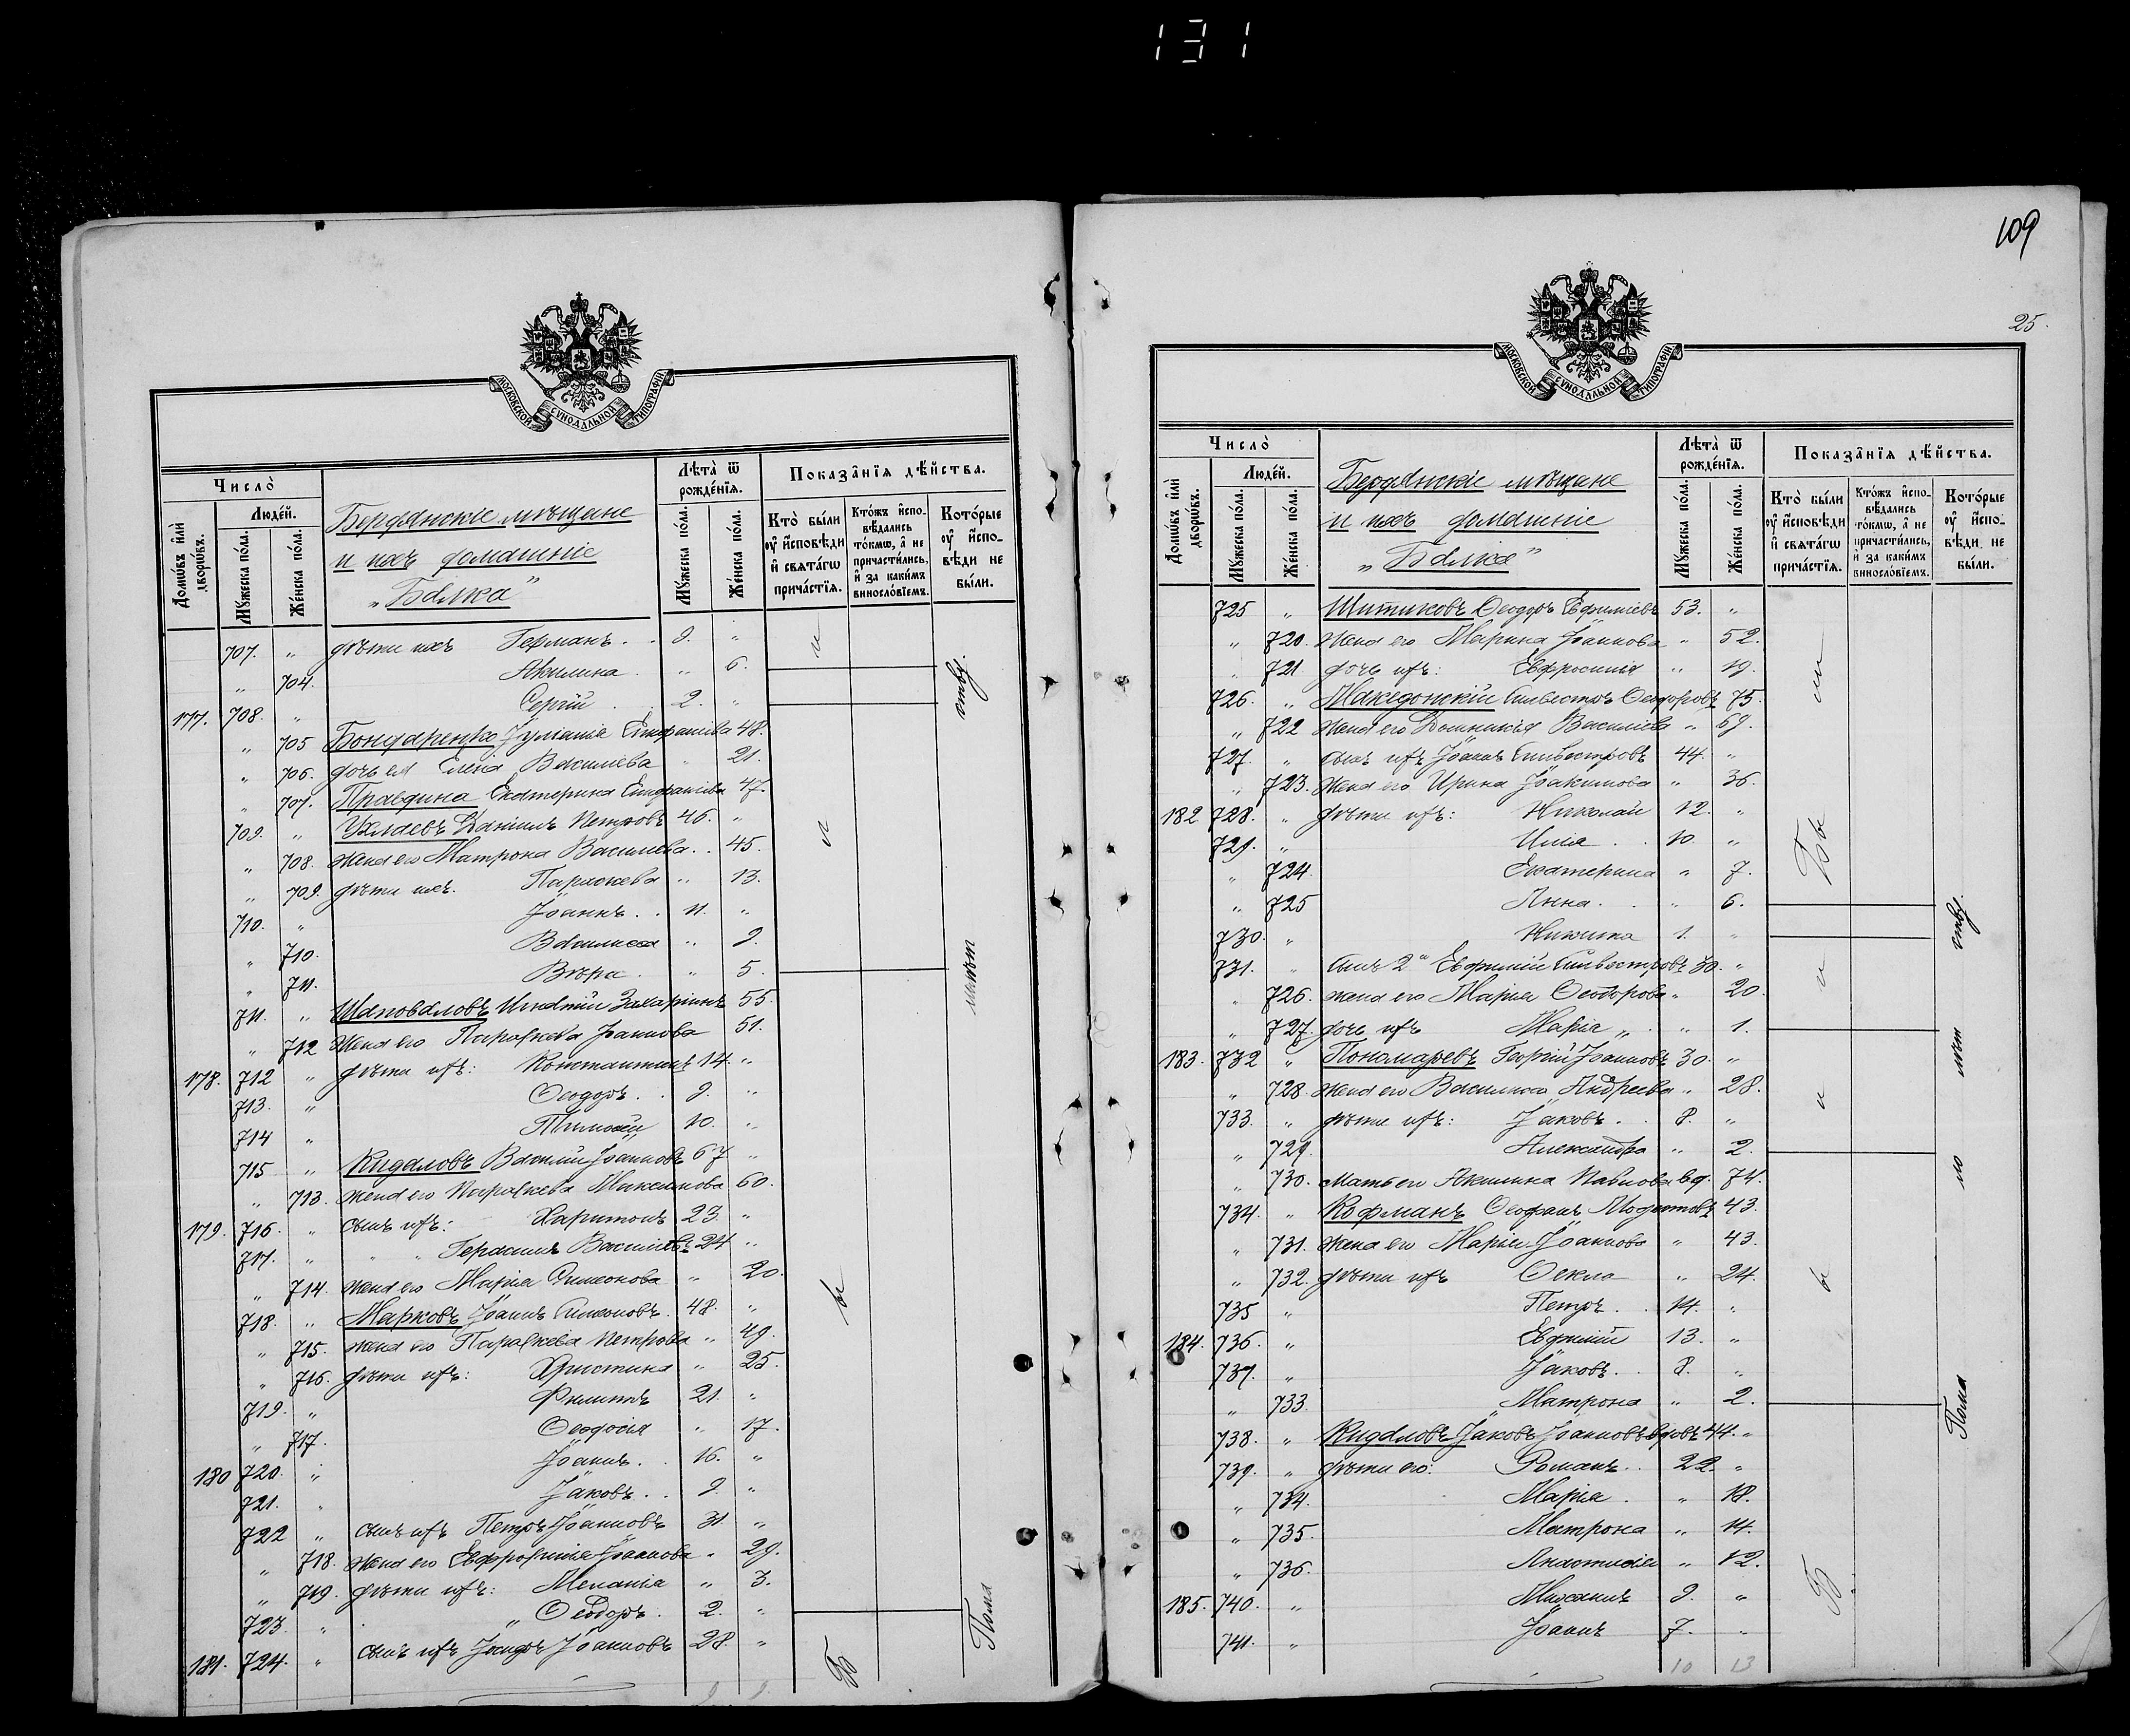 131
МОСКОВСКОЙ СѴНОДАЛЬНОЙ ТИПОГРАФІИ
Число̀
Люде́й.
Домѡ́въ и҆лѝ дворѡ́въ.
Мꙋ́жеска по́ла.
Же́нска по́ла.
Бердянскіе мѣщане
и ихъ домашніе
„Балка"
Лѣта̀ ѿ рожде́нїѧ.
Мꙋ́жеска по́ла.
Же́нска по́ла.
Показа̂нїѧ дѣ́йства.
Кто̀ бы́ли ᲂу҆ и҆сповѣ́ди и҆ свѧта́гѡ прича́стїѧ.
Кто́жъ и҆спо-вѣ́дались то́кмѡ, а҆ не причасти́лись, и҆ за каки́мъ винослѡ́вїемъ.
Кото́рые ᲂу҆ и҆спо-вѣ́ди не бы́ли.
707. „ дѣти ихъ Германъ . . 9. „
„ 704. Акилина . „ 6.
177. 708. „ Сергій . 2. „
„ 705 Бондаренко Іуліанія Епифаніева 48.
„ 706. дочь ея Елена Василіева „ 21.
„ 707. Правдина Екатерина Епифаніева 47.
709. „ Даніилъ Петровъ 46. „
„ 708. жена его Матрона Василіева . . 45.
„ 709. дѣти ихъ. Параскева „ 13.
710. „ Іоаннъ . . 11. „
„ 710. Василиса „ 9.
„ 711. Вѣра . „ 5.
711. „ Шаповаловъ Игнатій Захаріинъ 55.
„ 712 жена его Параскева Іоаннова 51.
178. 712 „ дѣти ихъ: Константинъ 14. „
713. „ Ѳеодоръ . . 9. „
714 „ Тимоѳей 10. „
715 „ Кидаловъ Василій Іоанновъ 67 „
„ 713. жена его Параскева Максимова 60.
179. 716. „ сынъ ихъ: Харитонъ 23. „
717. „ „ Герасимъ Василіевъ 24 „
„ 714. жена его Марія Симеонова „ 20.
718. „ Марковъ Іоаннъ Симеоновъ. 48. „
„ 715. жена его Параскева Петрова „ 49.
„ 716. дѣти ихъ: Христина „ 25.
719. „ Филиппъ 21. „
„ 717. Ѳеодосія „ 17.
180 720. „ Іоаннъ . 16. „
721. „ Іаковъ . . 9. „
722 „ сынъ ихъ Петръ Іоанновъ 31 „
„ 718. жена его Евфросинія Іоаннова „ 29.
„ 719. дѣти ихъ: Меланія „ 3.
723. „ „ Ѳеодоръ . 2. „
181. 724. „ сынъ ихъ Іоанновъ 28 „
9 9
109
25.
МОСКОВСКОЙ СѴНОДАЛЬНОЙ ТИПОГРАФІИ
Число̀
Люде́й.
Домѡ́въ и҆лѝ дворѡ́въ.
Мꙋ́жеска по́ла.
Же́нска по́ла.
Бердянскіе мѣщане
и ихъ домашніе
„Балка"
Лѣта̀ ѿ рожде́нїѧ.
Мꙋ́жеска по́ла.
Же́нска по́ла.
Показа̂нїѧ дѣ́йства.
Кто̀ бы́ли ᲂу҆ и҆сповѣ́ди и҆ свѧта́гѡ прича́стїѧ.
Кто́жъ и҆спо-вѣ́дались то́кмѡ, а҆ не причасти́лись, и҆ за каки́мъ винослѡ́вїемъ.
Кото́рые ᲂу҆ и҆спо-вѣ́ди не бы́ли.
725 „ Шитиковъ Ѳеодоръ Евфиміевъ 53. „
„ 720. жена его Марина Іоаннова „ 52.
„ 721 дочь ихъ: Евфросинія „ 19.
726. „ Македонскій Силвестръ Ѳеодоровъ 75.
„ 722 жена его Домникія Василіева „ 69.
727. „ сынъ ихъ Іоаннъ Силвестровъ 44. „
„ 723. жена его Ирина Іоакимова „ 36.
182 728. „ дѣти ихъ: Николай 12. „
729. „ Илія . . 10. „
„ 724. Екатерина „ 7.
„ 725 Анна . . „ 6.
730. „ Никита 1. „
731. „ сынъ 2й Евфимій Силвестровъ 30. „
„ 726. жена его Марія Ѳеодорова „ 20.
„ 727. дочь ихъ Марія „ . „ 1.
183. 732 „ Пономаревъ Георгій Іоанновъ 30. „
„ 728. жена его Василиса Андреева „ 28.
733. „ дѣти ихъ: Іаковъ . . 8. „
„ 729. Александра „ 2.
„ 730. мать его Акилина Павлова вд. 74.
734. „ Кофманъ Ѳеофанъ Модестовъ 43.
„ 731. жена его Марія Іоаннова „ 43.
„ 732. дѣти ихъ Ѳекла „ 24.
735 „ Петръ . . 14. „
184. 736. „ Евфимій 13. „
737. „ Іаковъ . . 8. „
„ 733. Матрона „ 2.
738. „ Кидаловъ Іаковъ Іоанновъ вдовъ 44. „
739. „ дѣти его: Романъ . . 22. „
„ 734. Марія . „ 18.
„ 735. Матрона „ 14.
„ 736. Анастасія „ 12.
185. 740. „ Михаилъ 9. „
741. „ Іоаннъ 7. „
10 13